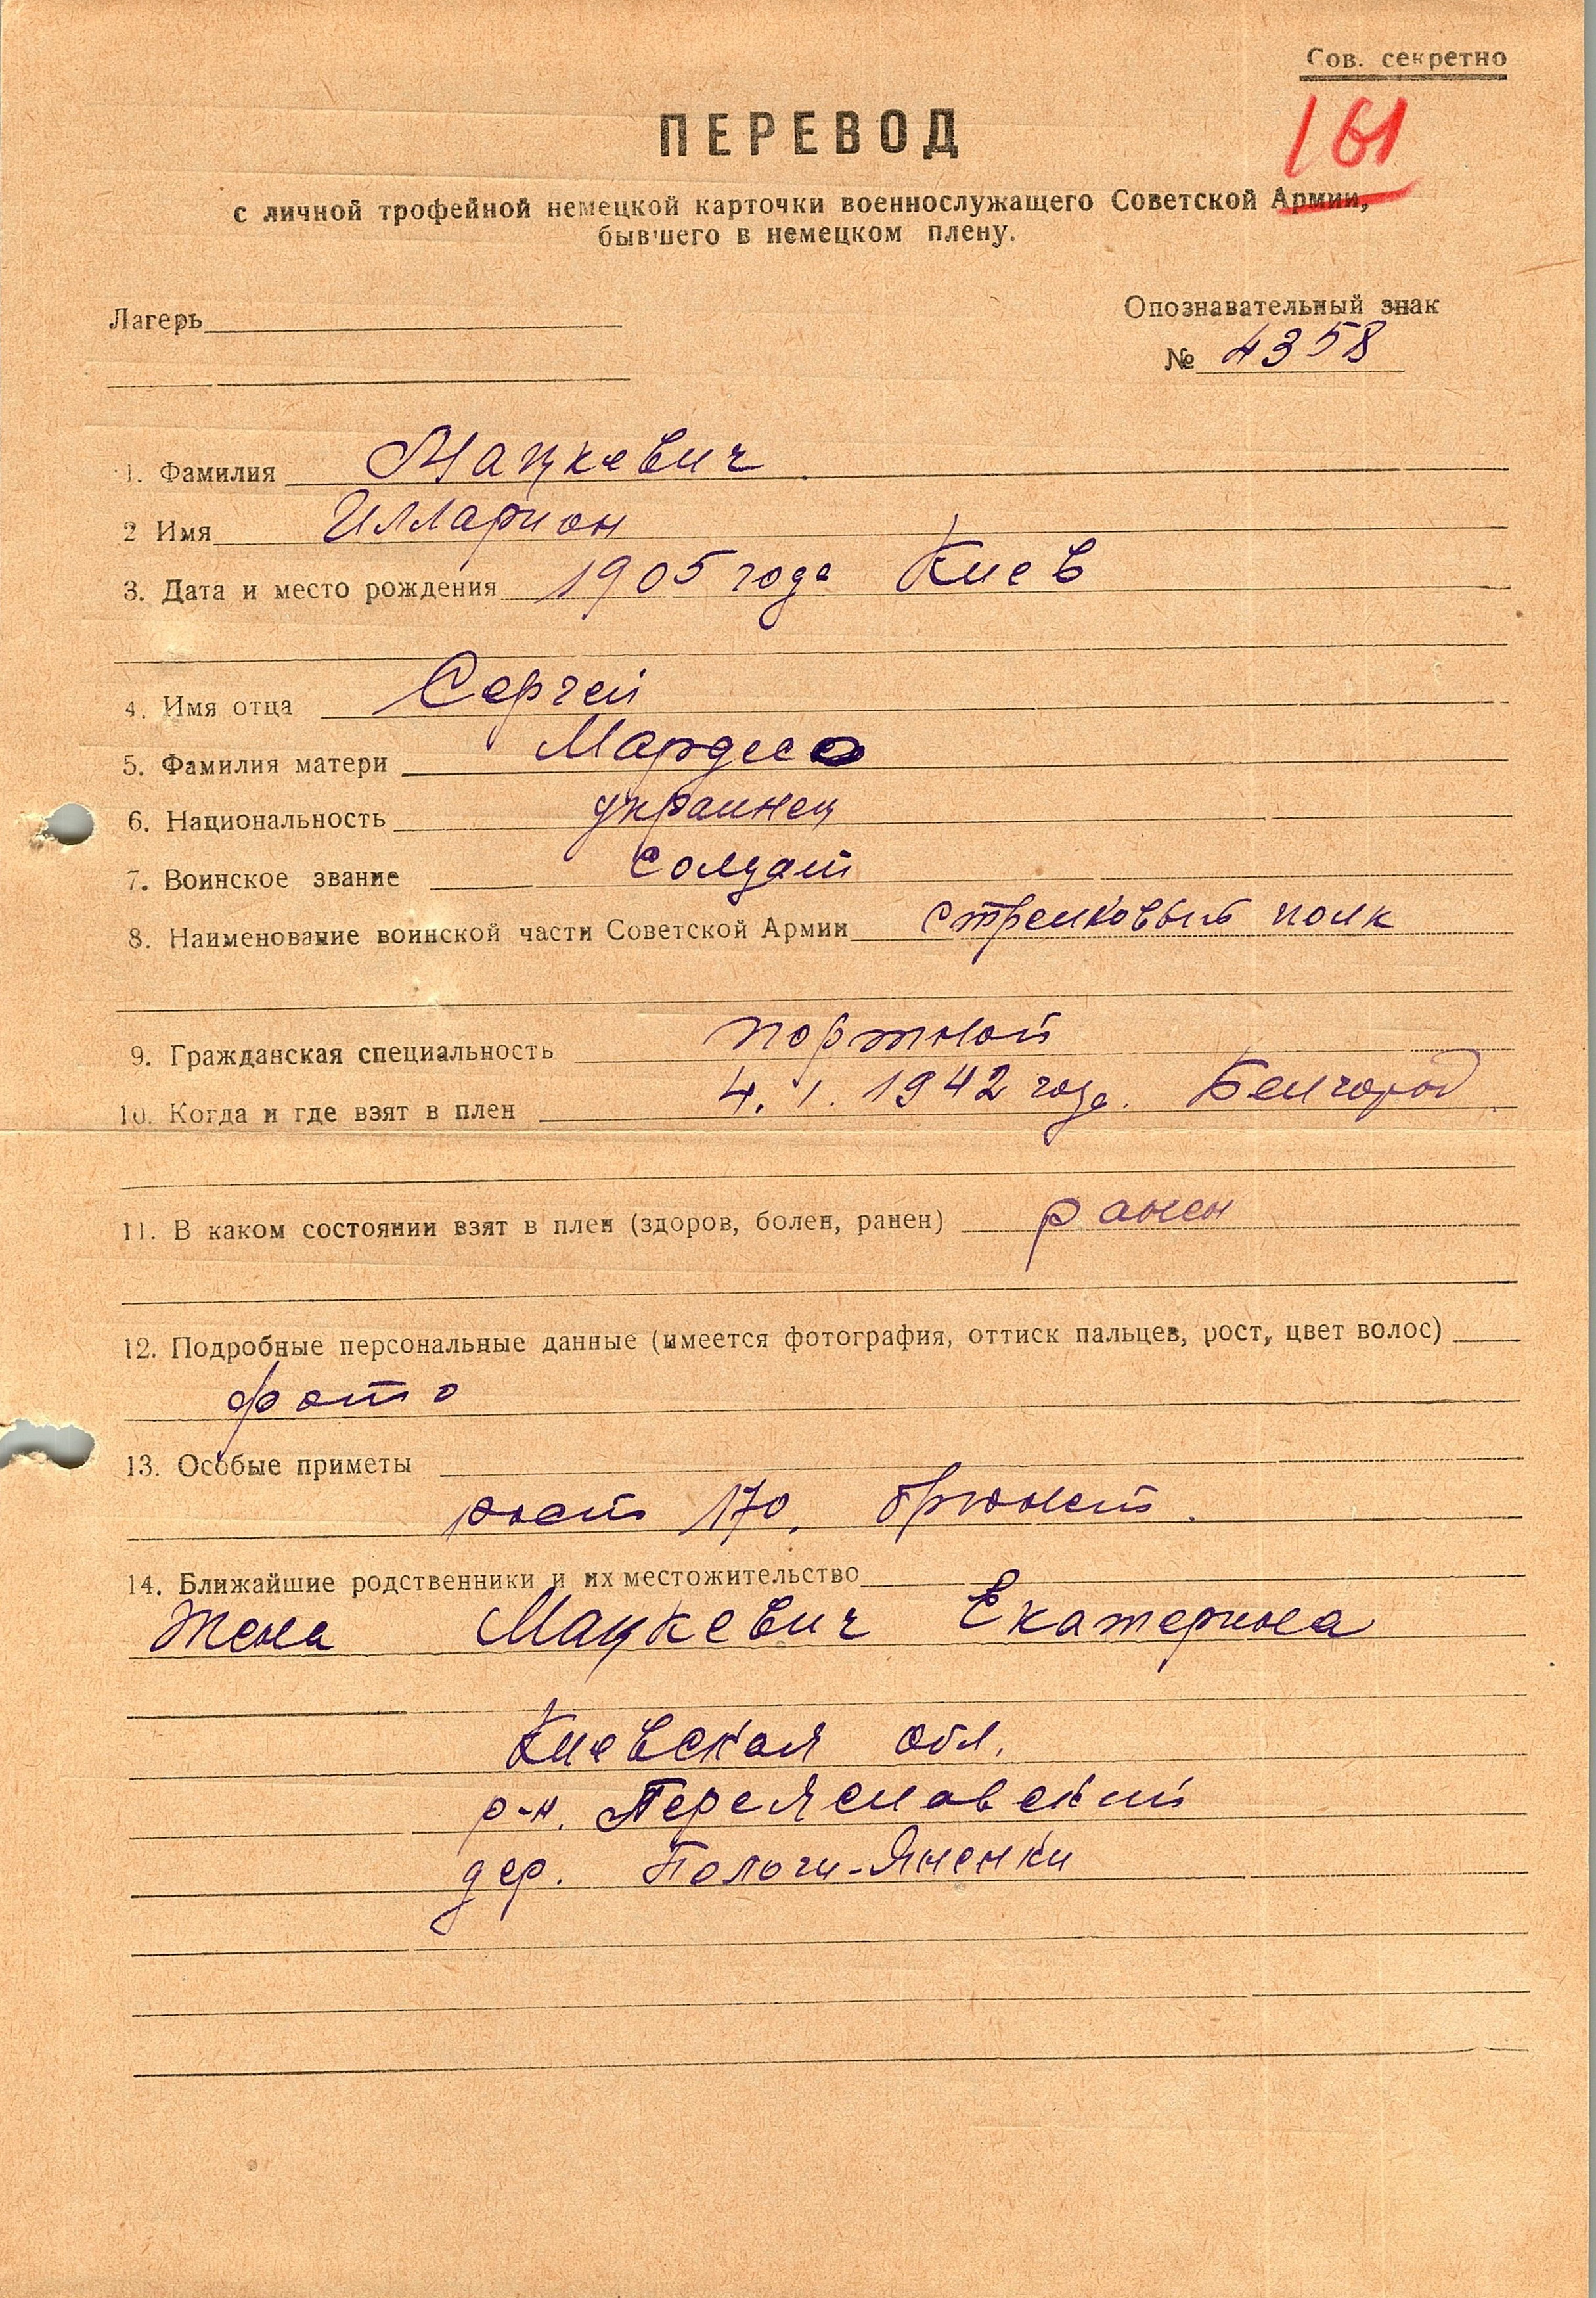 Сов. секретно
161
ПЕРЕВОД
с личной трофейной немецкой карточки военнослужащего Советской Армии,
бывшего в немецком плену.
Лагерь
Опознавательный знак
№ 4358
1. Фамилия Мацкевич
2 Имя Илларион
3. Дата и место рождения 1905 года Киев
4. Имя отца Сергей
5. Фамилия матери
6. Национальность украинец
7. Воинское звание солдат
8. Наименование воинской части Советской Армии стрелковый полк
9. Гражданская специальность портной
10. Когда и где взят в плен 4. 1. 1942 года. Белгород
11. В каком состоянии взят в плен (здоров, болен, ранен) ранен
12. Подробные персональные данные (имеется фотография, оттиск пальцев, рост, цвет волос)
фото
13. Особые приметы
рост 170, брюнет.
14. Ближайшие родственники и их местожительство
Жена Мацкевич Екатерина
Киевская обл.
р-н. Переяславский
дер. Пологи-Яненки